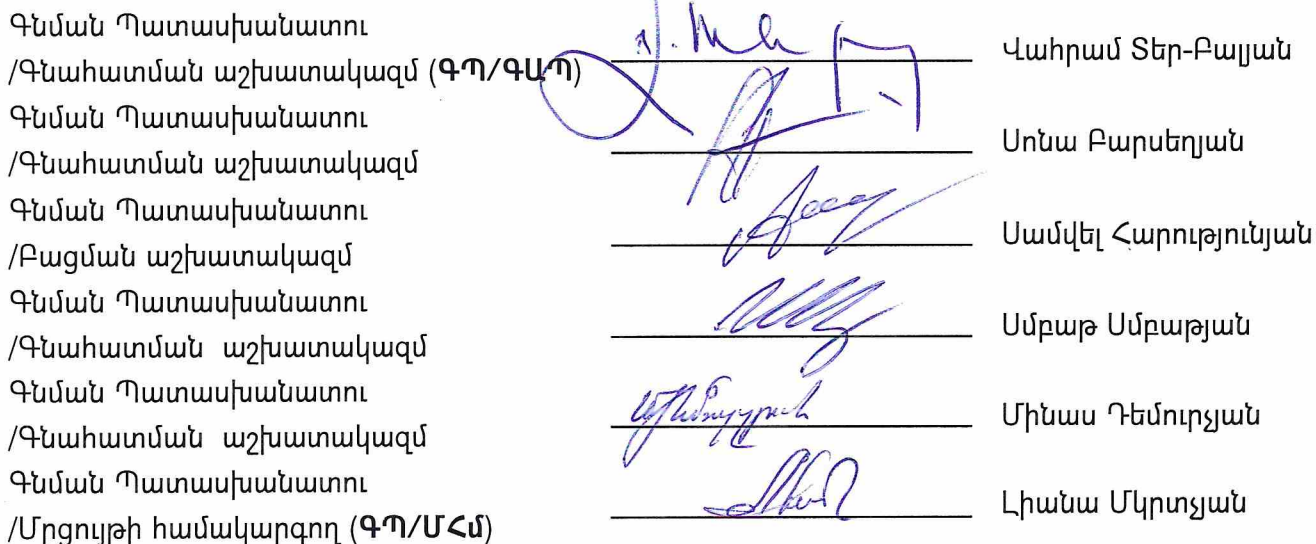 Գնման Պատասխանատու
/Գնահատման աշխատակազմ (ԳՊ/ԳԱՊ)
Վահրամ Տեր-Բալյան
Գնման Պատասխանատու
/Գնահատման աշխատակազմ
Սոնա Բարսեղյան
Գնման Պատասխանատու
/Բացման աշխատակազմ
Սամվել Հարությունյան
Գնման Պատասխանատու
/Գնահատման աշխատակազմ
Սմբաթ Սմբաթյան
Գնման Պատասխանատու
/Գնահատման աշխատակազմ
Մինաս Դեմուրչյան
Գնման Պատասխանատու
/Մրցույթի համակարգող (ԳՊ/ՄՀմ)
Լիանա Մկրտչյան